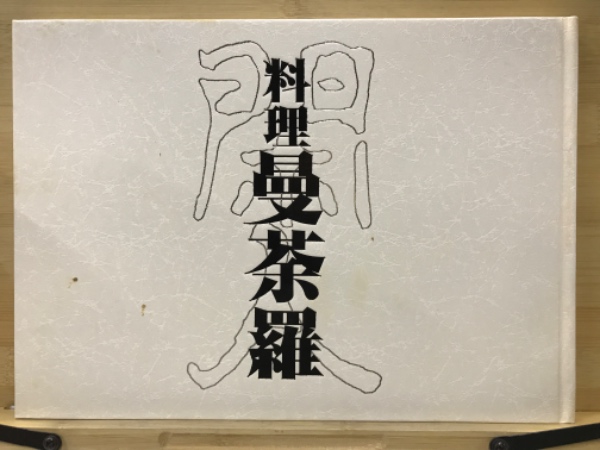 料理曼荼羅